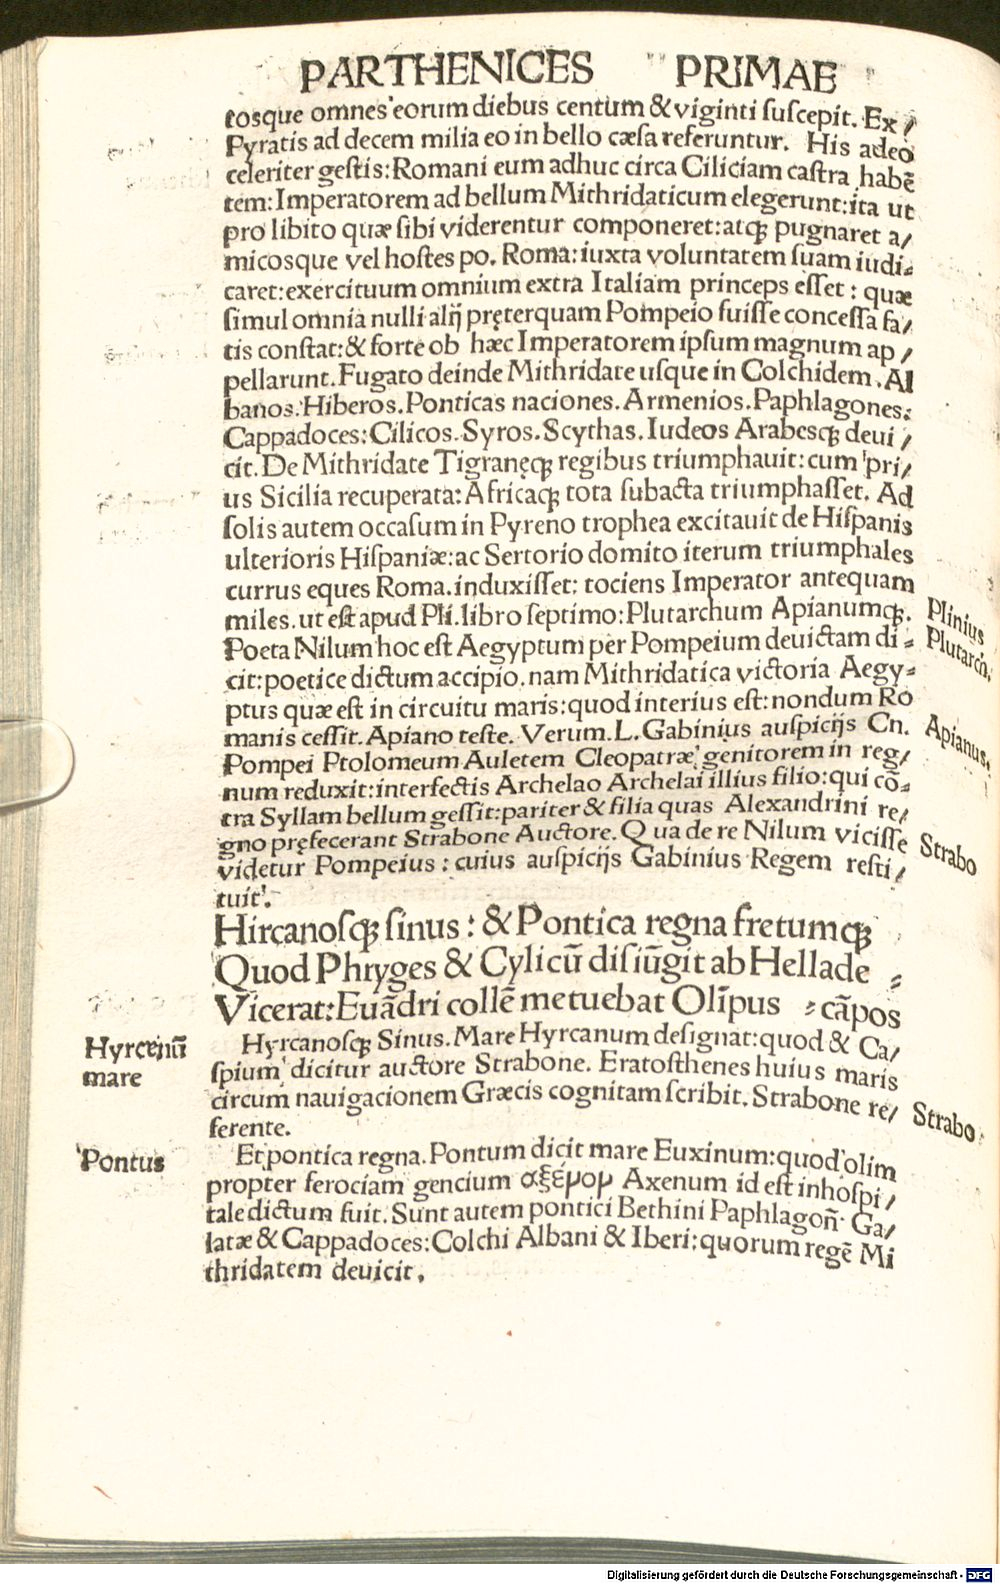 PARTHENICES PRIMAE
eosque omnes eorum diebus centum & viginti suscepit. Ex/
Pyratis ad decem milia eo in bello cæsa referuntur. His adeo
celeriter gestis: Romani eum adhuc circa Ciliciam castra habē
tem: Imperatorem ad bellum Mithridaticum elegerunt: ita ut
pro libito quæ sibi viderentur componeret: atqꝫ pugnaret a/
micosque vel hostes po. Roma: iuxta voluntatem suam iudi-
caret: exercituum omnium extra Italiam princeps esset: quæ
simul omnia nulli alij pręterquam Pompeio fuisse concessa fa/
tis constat: & forte ob hæc Imperatorem ipsum magnum ap/
pellarunt. Fugato deinde Mithridate usque in Colchidem. Al
banos. Hiberos. Ponticas naciones. Armenios. Paphlagones:
Cappadoces: Cilicos. Syros. Scythas. Iudeos Arabesqꝫ devi/
cit. De Mithridate Tigranęqꝫ regibus triumphauit: cum pri/
us Sicilia recuperata: Africaqꝫ tota subacta triumphasset. Ad
solis autem occasum in Pyreno trophea excitauit de Hispanis
ulterioris Hispaniæ: ac Sertorio domito iterum triumphales
currus eques Roma. induxisset: tociens Imperator antequam
miles. ut est apud Pli. libro septimo: Plutarchum Apianumqꝫ.
Poeta Nilum hoc est Aegyptum per Pompeium deuictam di-
cit: poetice dictum accipio. nam Mithridatica victoria Aegy-
ptus quæ est in circuitu maris: quod interius est: nondum Ro
manis cessit. Apiano teste. Verum. L. Gabinius auspicijs Cn.
Pompei Ptolomeum Auletem Cleopatræ genitorem in reg/
num reduxit: interfectis Archelao Archelai illius filio: qui cō-
tra Syllam bellum gessit: pariter & filia quas Alexandrini re/
gno pręfecerant Strabone Auctore. Qua de re Nilum vicisse
videtur Pompeius: cuius auspicijs Gabinius Regem resti/
tuit.
Plinius
Plutarch.
Apianus.
Strabo
Hircanosqꝫ sinus: & Pontica regna fretumqꝫ
Quod Phryges & Cylicū disiūgit ab Hellade
Vicerat: Euādri collē metuebat Olīpus cāpos
Hyrcanū
mare
Hyrcanosqꝫ Sinus. Mare Hyrcanum designat: quod & Ca/
spium dicitur auctore Strabone. Eratosthenes huius maris
circum nauigacionem Græcis cognitam scribit. Strabone re/
ferente.
Strabo
Pontus
Et pontica regna. Pontum dicit mare Euxinum: quod olim
propter ferociam gencium αξενον Axenum id est inhospi/
tale dictum fuit. Sunt autem pontici Bethini Paphlagoñ Ga/
latæ & Cappadoces: Colchi Albani & Iberi: quorum regē Mi
thridatem deuicit.
Digitalisierung gefördert durch die Deutsche Forschungsgemeinschaft - DFG